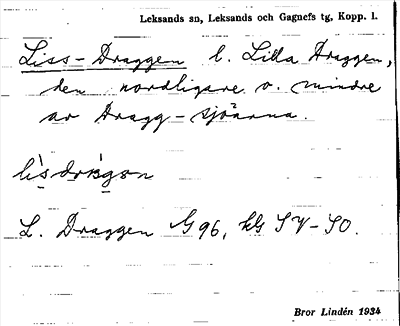 Leksands sn, Leksands och Gagnefs tg, Kopp. l.
Liss-Draggen l. Lilla Draggen,
den nordligare o. mindre
av Dragg-sjöarna.
L. Draggen G 96, bG SV-SO.
Bror Lindén 1934